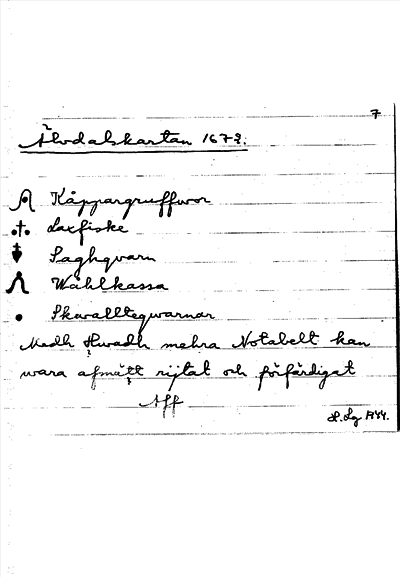 7
Älvdalskartan 1672.
Kåppargruffwor
Laxfiske
Saghqvarn
Wåhlkassa
Skvallteqwarnar
Medh Hwadh mehra Notabelt kan
wara afmätt rijtat och förfärdigat
Aff
H. Lg 1944.